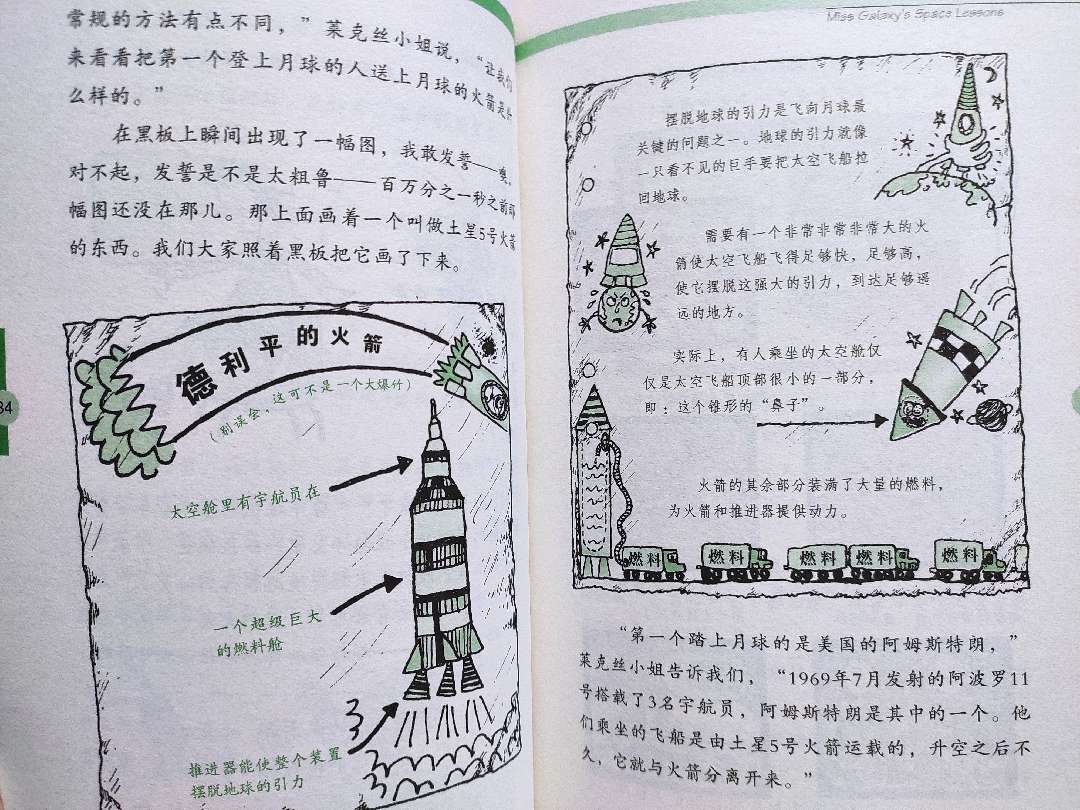 常规的方法有点不同，”莱克丝小姐说，“让我们
来看看把第一个登上月球的人送上月球的火箭是什
么样的。”
在黑板上瞬间出现了一幅图，我敢发誓——噢，
对不起，发誓是不是太粗鲁——百万分之一秒之前那
幅图还没在那儿。那上面画着一个叫做土星5号火箭
的东西。我们大家照着黑板把它画了下来。
德利平的火箭
（别误会，这可不是一个大爆竹）
太空舱里有宇航员在
一个超级巨大
的燃料舱
推进器能使整个装置
摆脱地球的引力
34
Miss Galaxy's Space Lessons
摆脱地球的引力是飞向月球最
关键的问题之一。地球的引力就像
一只看不见的巨手要把太空飞船拉
回地球。
需要有一个非常非常非常大的火
箭使太空飞船飞得足够快，足够高，
使它摆脱这强大的引力，到达足够遥
远的地方。
实际上，有人乘坐的太空舱仅
仅是太空飞船顶部很小的一部分，
即：这个锥形的“鼻子”。
火箭的其余部分装满了大量的燃料，
为火箭和推进器提供动力。
燃料 燃料 燃料 燃料 燃料
“第一个踏上月球的是美国的阿姆斯特朗，”
莱克丝小姐告诉我们，“1969年7月发射的阿波罗11
号搭载了3名宇航员，阿姆斯特朗是其中的一个。他
们乘坐的飞船是由土星5号火箭运载的，升空之后不
久，它就与火箭分离开来。”